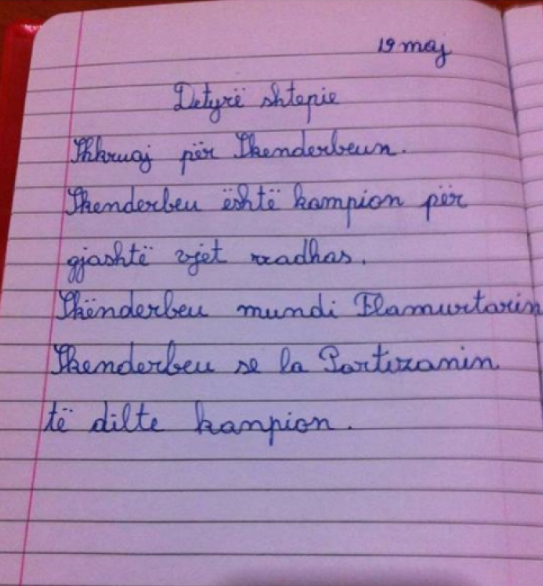 19 maj
Detyrë shtepie
Shkruaj për Skenderbeun.
Skenderbeu është kampion për
gjashtë vjet rradhas.
Skënderbeu mundi Flamurtarin
Skenderbeu se la Partizanin
të dilte kanpion.